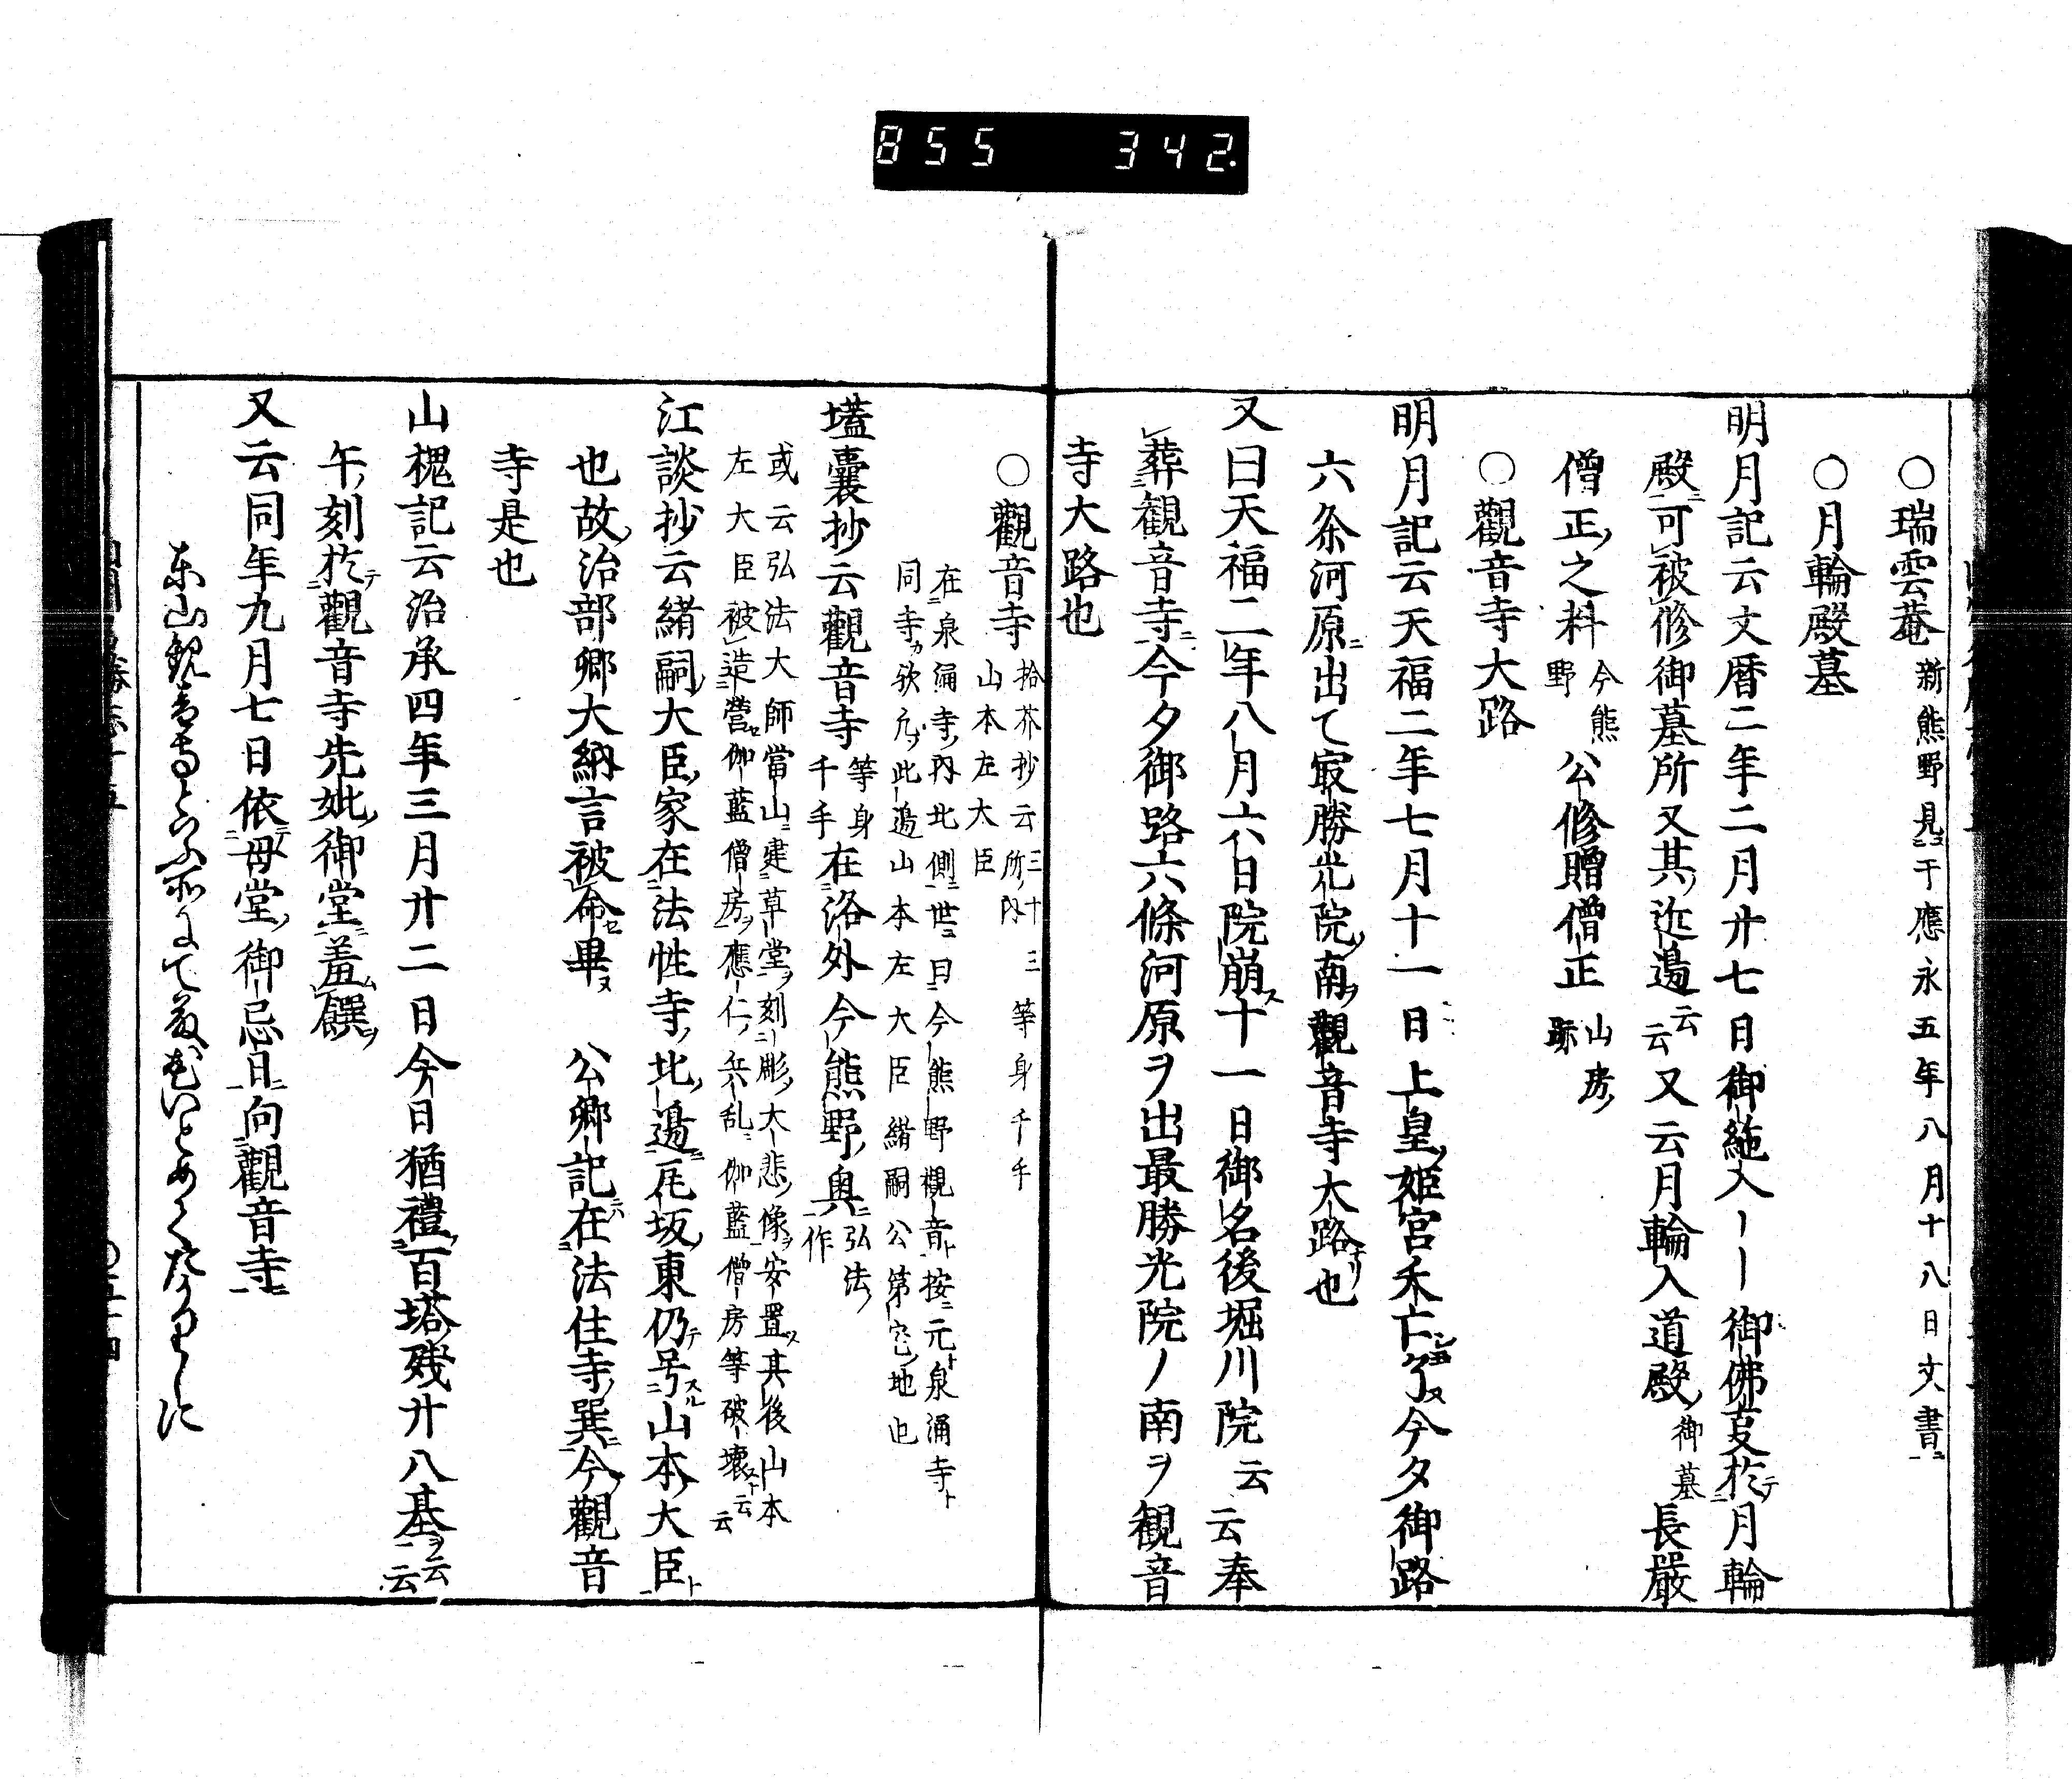 855 342.
○瑞雲菴 新熊野見于應永五年八月十八日文書
○月輪殿墓
明月記云文暦二年二月廿七日御絁入〡〡〡御佛㕝於月輪
殿可被修御墓所又其近邊云云又云月輪入道殿御墓長嚴
僧正之料今熊野公修贈僧正山房
○觀音寺大路
明月記云天福二年七月十一日上皇姫宮禾亡了今夕御路
六条河原出て寂勝光院南觀音寺大路也
又曰天福二年八月六日院崩十一日御名後堀川院云云奉
葬観音寺今夕御路六條河原ヲ出最勝光院ノ南ヲ観音
寺大路也
○觀音寺 拾芥抄云三十三所内等身千手山本左大臣
在泉涌寺内北側世曰今熊野觀音按元泉涌寺ト
同寺欤凢此邉山本左大臣緒嗣公第宅地也
壒囊抄云觀音寺等身千手在洛外今熊野奥弘法作
或云弘法大師當山建草堂刻彫大悲像安置其後山本
左大臣被造營伽藍僧房應仁兵乱伽藍僧房等破壞云云
江談抄云緒嗣大臣家在法性寺北邉瓦坂東仍号山本大臣
也故治部卿大納言被命畢 公卿記在法住寺巽今觀音
寺是也
山槐記云治承四年三月廿二日今日猶禮百塔残廿八基云云
午刻於觀音寺先妣御堂羞饌
又云同年九月七日依母堂御忌日向觀音寺